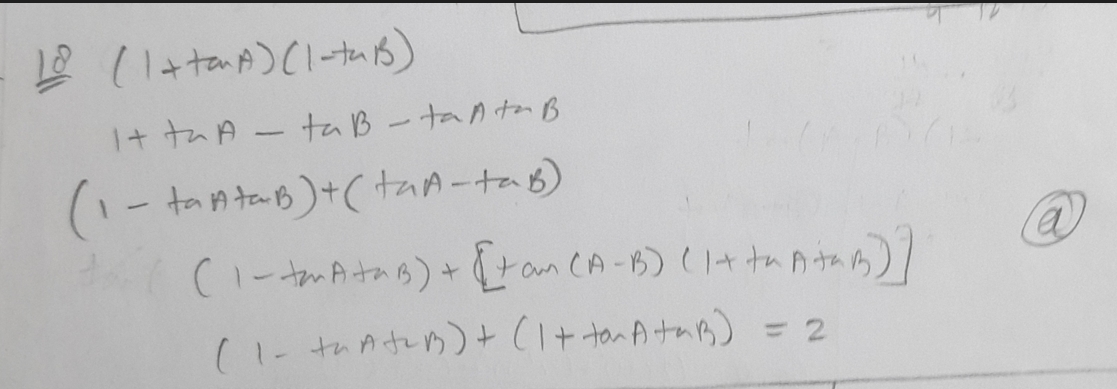 18 (1+tanA)(1-tanB)
1+ tanA - tanB - tanA tanB
(1 - tanAtanB)+(tanA-tanB)
(1-tanAtanB)+[tan(A-B)(1+tanAtanB)]
(a)
(1- tanAtanB)+(1+tanAtanB) = 2